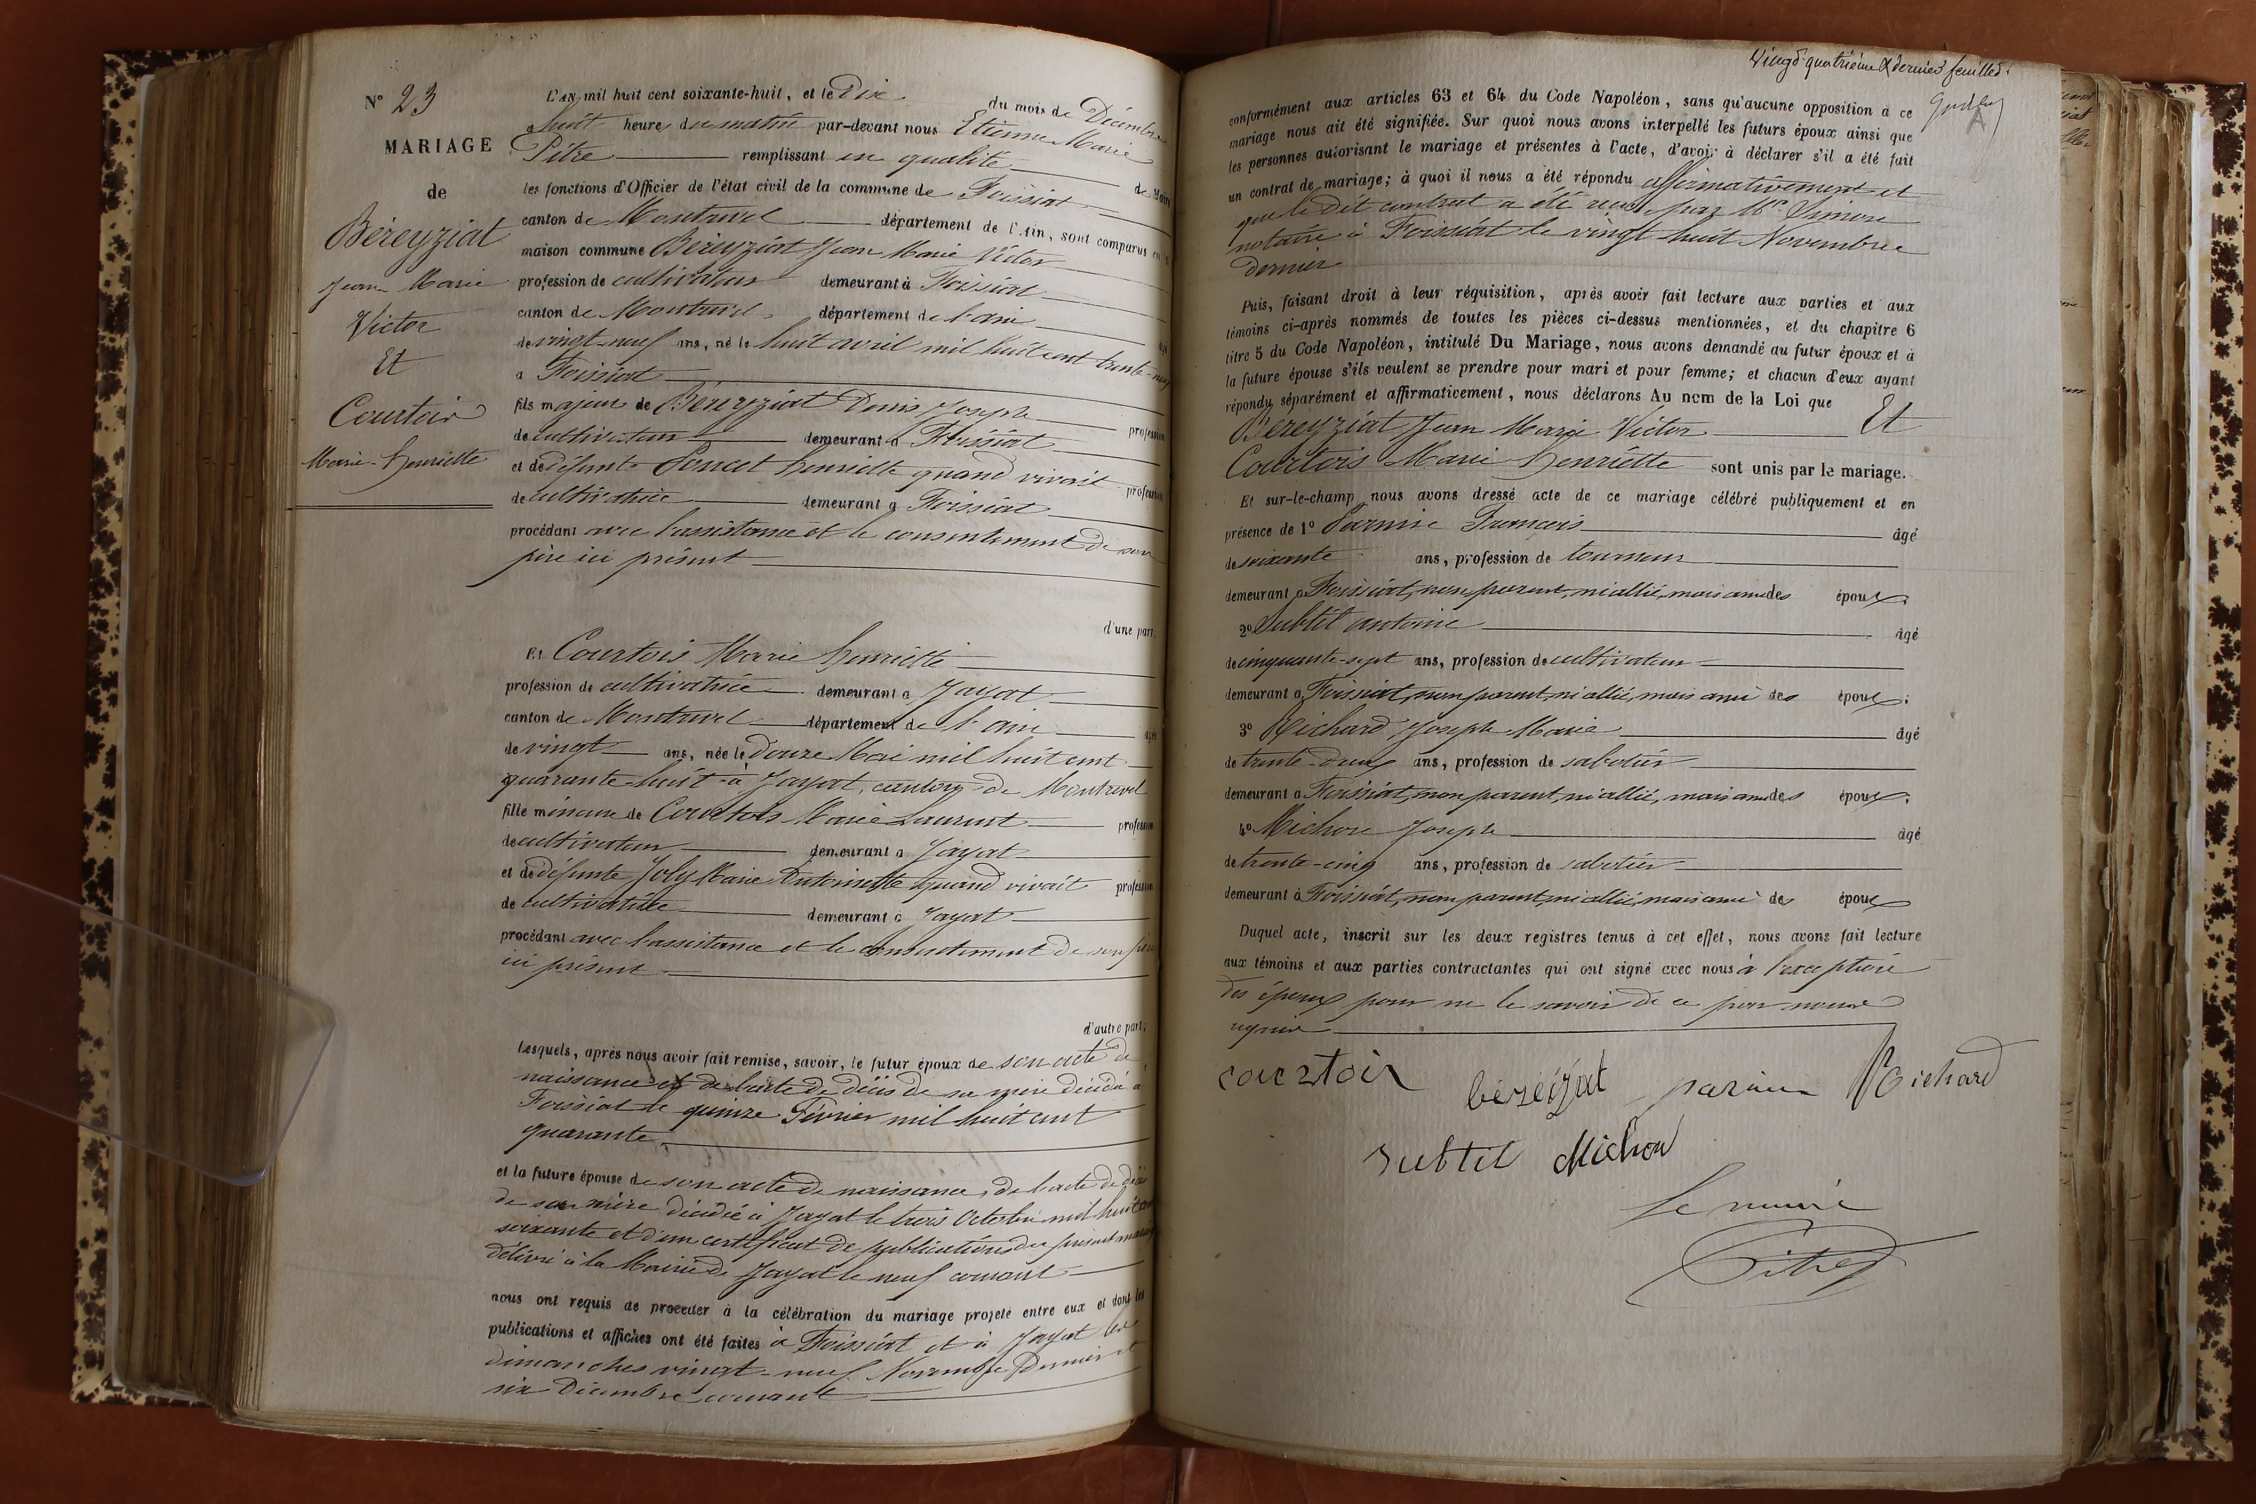 N° 23
MARIAGE
de
Béreyziat
Jean Marie
Victor
Et
Courtois
Marie-henriette
L'AN mil huit cent soixante-huit, et le Dix du mois de Décembre
à huit heures du matin par-devant nous Etienne Marie
Pitre remplissant en qualité de Maire
les fonctions d'Officier de l'état civil de la commune de Foissiat
canton de Montrevel département de l'Ain, sont comparus en la
maison commune Béreyziat Jean Marie Victor
profession de cultivateur demeurant à Foissiat
canton de Montrevel département de l'ain âgé
de vingt-neuf ans, né le huit avril mil huit cent trente-neuf
à Foissiat
fils majeur de Béreyziat Denis Joseph profession
de cultivateur demeurant à Foissiat
et de défunte Poncet henriette quand vivait profession
de cultivatrice demeurant à Foissiat
procédant avec l'assistance et le consentement de son
père ici présent
d'une part,
Et Courtois Marie henriette
profession de cultivatrice demeurant à Jayat
canton de Montrevel département de l'ain âgée
de vingt ans, née le douze Mai mil huit cent
quarante huit à Jayat, canton de Montrevel
fille mineure de Courtois Marie Laurent profession
de cultivateur demeurant à Jayat
et de défunte Joly Marie Antoinette quand vivait profession
de cultivatrice demeurant à Jayat
procédant avec l'assistance et le consentement de son père
ici présent
d'autre part,
Lesquels, après nous avoir fait remise, savoir, le futur époux de son acte de
naissance et de l'acte de décès de sa mère décédée à
Foissiat le quinze Février mil huit cent
quarante
et la future épouse de son acte de naissance, de l'acte de décès
de sa mère décédée à Jayat le trois Octobre mil huit cent
soixante et d'un certificat de publications du présent mariage
délivré à la Mairie de Jayat le neuf courant
nous ont requis de procéder à la célébration du mariage projeté entre eux et dont les
publications et affiches ont été faites à Foissiat et à Jayat les
dimanches vingt-neuf Novembre Dernier et
six Décembre courant
Vingt quatrième & dernier feuillet.
conformément aux articles 63 et 64 du Code Napoléon, sans qu'aucune opposition à ce
mariage nous ait été signifiée. Sur quoi nous avons interpellé les futurs époux ainsi que
les personnes autorisant le mariage et présentes à l'acte, d'avoir à déclarer s'il a été fait
un contrat de mariage; à quoi il nous a été répondu affirmativement et
que le dit contrat a été reçu par Me Simon
notaire à Foissiat le vingt huit Novembre
dernier
Puis, faisant droit à leur réquisition, après avoir fait lecture aux parties et aux
témoins ci-après nommés de toutes les pièces ci-dessus mentionnées, et du chapitre 6
titre 5 du Code Napoléon, intitulé Du Mariage, nous avons demandé au futur époux et à
la future épouse s'ils veulent se prendre pour mari et pour femme; et chacun d'eux ayant
répondu séparément et affirmativement, nous déclarons Au nom de la Loi que
Béreyziat Jean Marie Victor Et
Courtois Marie henriette sont unis par le mariage.
Et sur-le-champ nous avons dressé acte de ce mariage célébré publiquement et en
présence de 1° Parmie François âgé
de soixante ans, profession de tourneur
demeurant à Foissiat, non parent, ni allié, mais ami des époux;
2° Subtil antoine âgé
de cinquante-sept ans, profession de cultivateur
demeurant à Foissiat, non parent, ni allié, mais ami des époux;
3° Richard Joseph Marie âgé
de trente-deux ans, profession de sabotier
demeurant à Foissiat, non parent, ni allié, mais ami des époux;
4° Michon Joseph âgé
de trente-cinq ans, profession de sabotier
demeurant à Foissiat, non parent, ni allié, mais ami des époux
Duquel acte, inscrit sur les deux registres tenus à cet effet, nous avons fait lecture
aux témoins et aux parties contractantes qui ont signé avec nous à l'exception
des époux pour ne le savoir de ce par nous
requis
courtois béréizíat Richard
subtil Michon
Le maire
Pitre